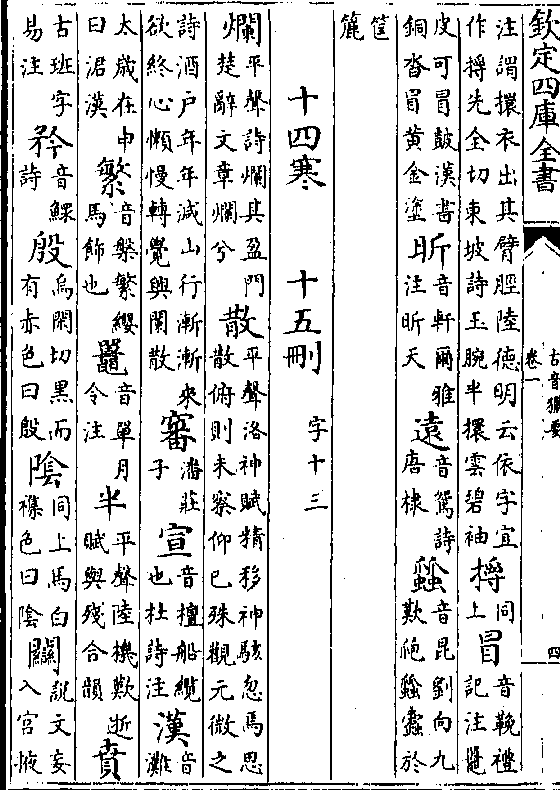 欽定四庫全書
古音獵要
卷一
四
注謂擐衣出其臂脛陸德明云依字宜
作捋先全切東坡詩玉腕半擐雲碧袖
捋
同
上
冒
音鞔禮
記注鼍
皮可冒鼓漢書
銅沓冒黄金塗
昕
音軒爾雅
注昕天
遠
音鴛詩
唐棣
蜫
音昆劉向九
歎蒶蜫蠹於
筐
簏
十四寒 十五刪
字十三
爛
平聲詩爛其盈門
楚辭文章爛兮
散
平聲洛神賦精移神駭忽焉思
散俯則未察仰已殊觀元微之
詩酒户年年減山行漸漸來
欲終心懒慢轉覺興闌散
審
潘莊
子
宣
音檀船纜
也杜詩注
漢
音
灘
太歲在申
曰涒漢
繁
音槃繁纓
馬飾也
鼍
音單月
令注
半
平聲陸機歎逝
賦與殘合韻
賁
古班字
易注
矜
音鰥
詩
殷
烏閑切黑而
有赤色曰殷
陰
同上馬白
襍色曰陰
闌
説文妄
入宮掖